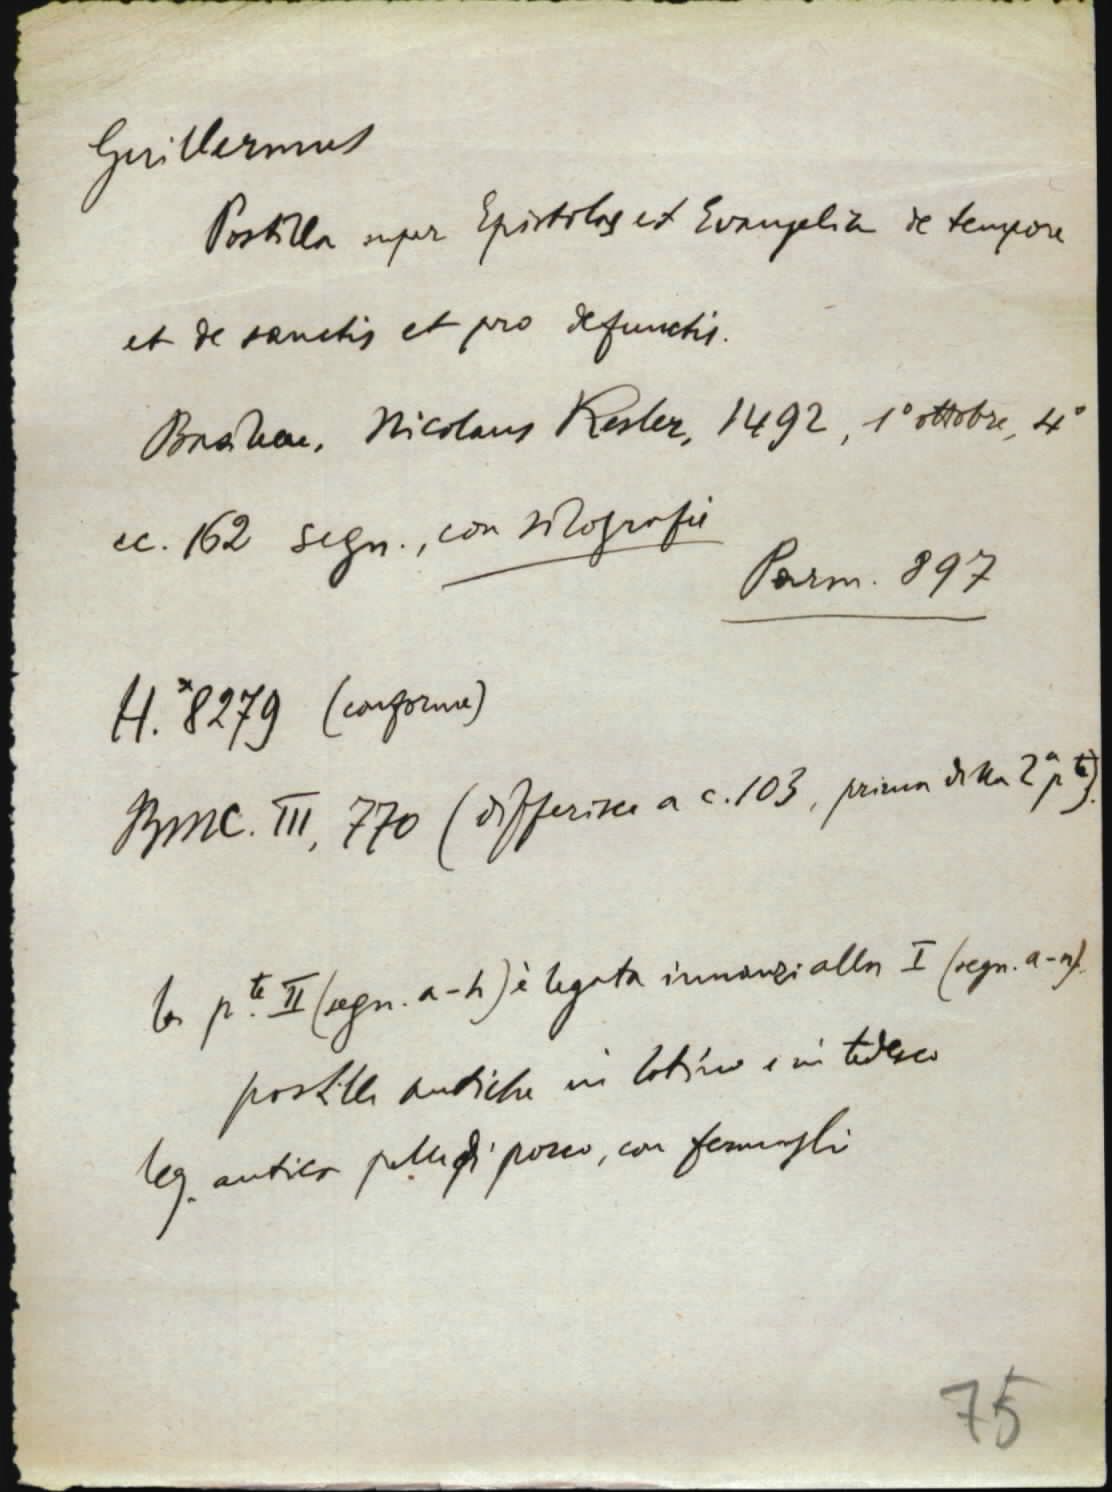 Guillermus
Postilla super Epistolas et Evangelia de tempore
et de sanctis et pro defunctis.
Basileae, Nicolaus Kesler, 1492, 1° ottobre, 4°
cc. 162 segn., con silografie
Parm. 897
H.*8279 (conforme)
BMC. III, 770 (differisce a c. 103, prima della 2ª pte).
la pte. II (segn. a-h) è legata innanzi alla I (segn. a-n).
postille antiche in latino e in tedesco
leg. antica pelle di porco, con fermagli
75